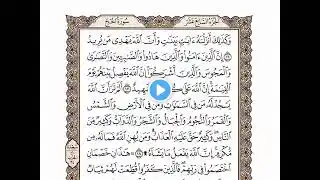 الجزء السابع عشر سورة الحج
وَكَذَٰلِكَ أَنزَلْنَٰهُ ءَايَٰتٍۭ بَيِّنَٰتٍ وَأَنَّ ٱللَّهَ يَهْدِى مَن يُرِيدُ
إِنَّ ٱلَّذِينَ ءَامَنُوا۟ وَٱلَّذِينَ هَادُوا۟ وَٱلصَّٰبِـِٔينَ وَٱلنَّصَٰرَىٰ
وَٱلْمَجُوسَ وَٱلَّذِينَ أَشْرَكُوٓا۟ إِنَّ ٱللَّهَ يَفْصِلُ بَيْنَهُمْ يَوْمَ
ٱلْقِيَٰمَةِ إِنَّ ٱللَّهَ عَلَىٰ شَهِيدٌ أَلَمْ تَرَ أَنَّ ٱللَّهَ
يَسْجُدُ لَهُۥ مَن فِى ٱلسَّمَٰوَٰتِ وَمَن فِى ٱلْأَرْضِ وَٱلشَّمْسُ
وَٱلْقَمَرُ وَٱلنُّجُومُ وَٱلْجِبَالُ وَٱلشَّجَرُ وَٱلدَّوَآبُّ وَكَثِيرٌ مِّنَ
ٱلنَّاسِ وَكَثِيرٌ حَقَّ عَلَيْهِ ٱلْعَذَابُ وَمَن يُهِنِ ٱللَّهُ فَمَا لَهُۥ مِن
مُّكْرِمٍ إِنَّ ٱللَّهَ يَفْعَلُ مَا يَشَآءُ هَٰذَانِ خَصْمَانِ
ٱخْتَصَمُوا۟ فِى رَبِّهِمْ فَٱلَّذِينَ كَفَرُوا۟ قُطِّعَتْ لَهُمْ ثِيَابٌ